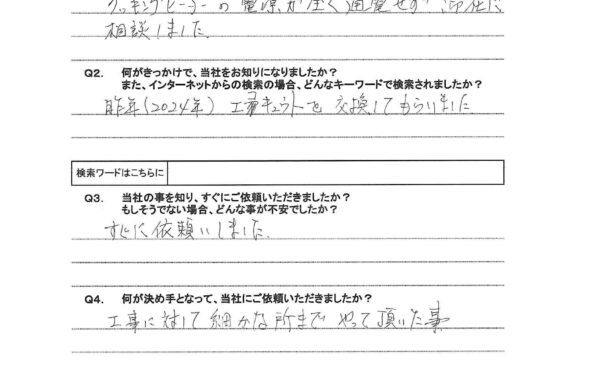 クッキングヒーターの電源が全く通電せず御社に
相談しました。
Q2. 何がきっかけで、当社をお知りになりましたか？
また、インターネットからの検索の場合、どんなキーワードで検索されましたか？
昨年(2024年) エコキュートを交換してもらいました
検索ワードはこちらに
Q3. 当社の事を知り、すぐにご依頼いただきましたか？
もしそうでない場合、どんな事が不安でしたか？
すぐに依頼いしました。
Q4. 何が決め手となって、当社にご依頼いただきましたか？
工事に対して細かな所までやって頂いた事